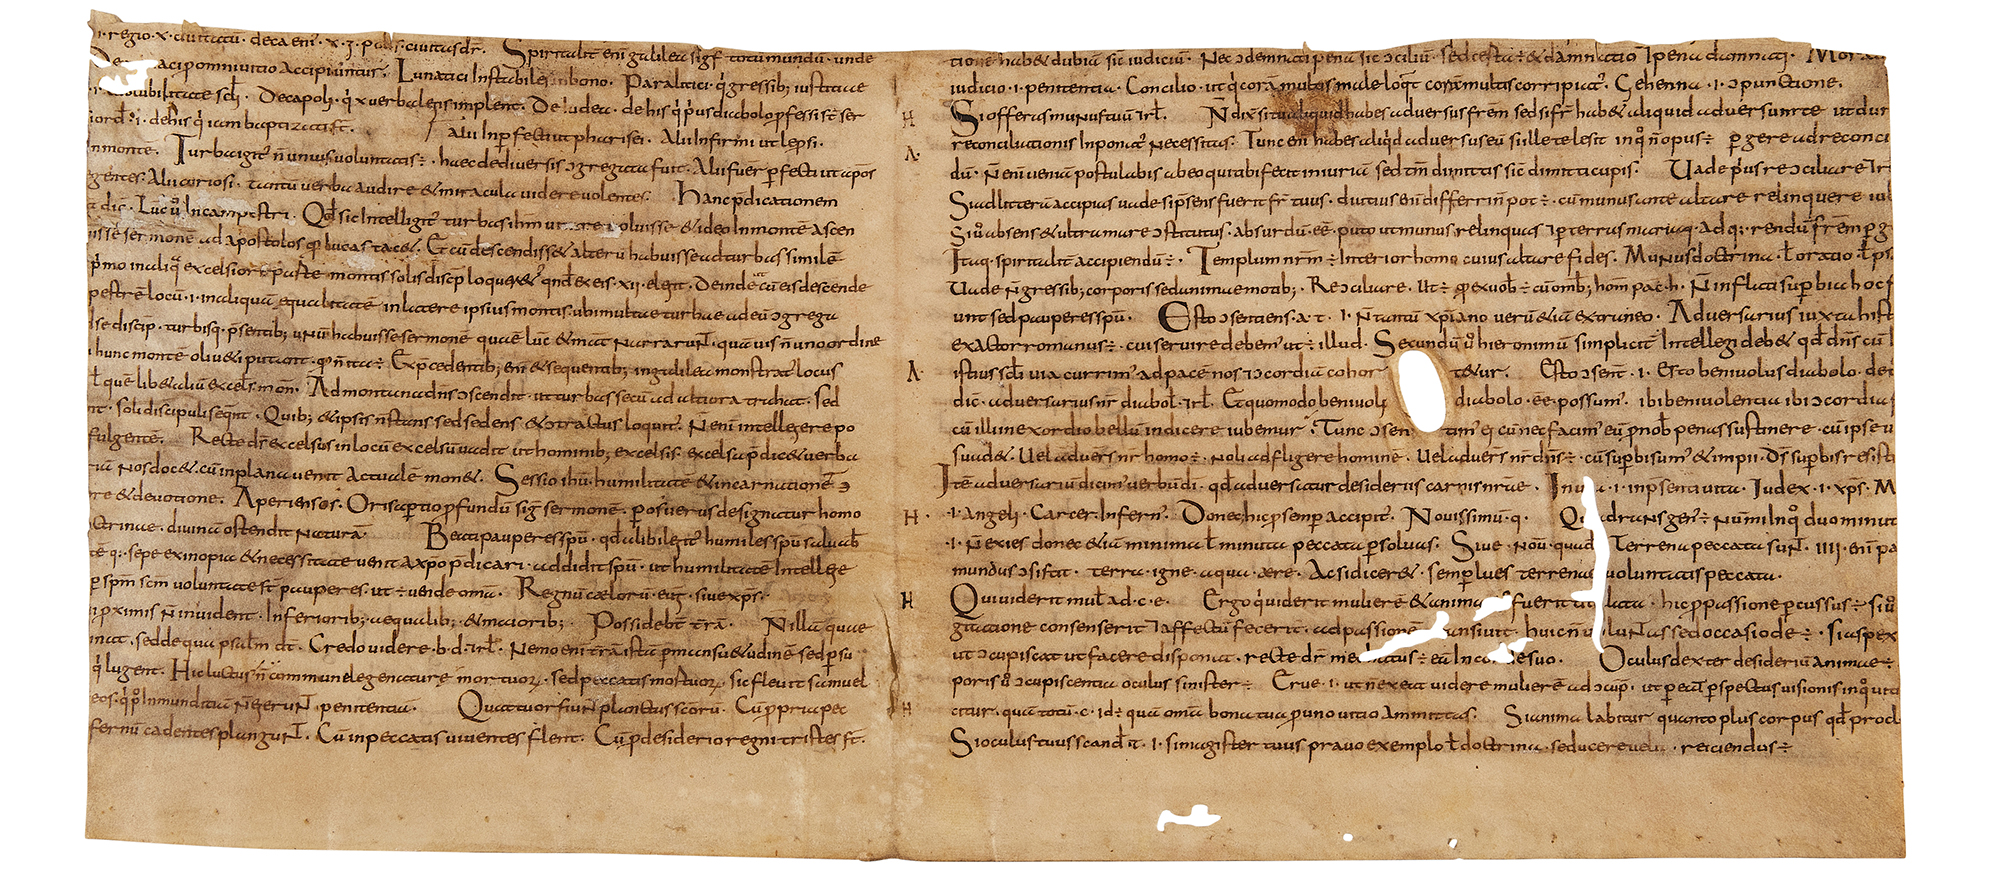 regio · x · ciuitatū · deca eni · x · ciuitas dr̄ . Spiritalit̄ eni galilea sigf totū mundū · unde
omni uitio accipiuntur . Lunatici Instabiles in bono . Paralitici · q̇ gressib; iustitiae
uolubilitate scł̄i . Decapoli · q̇ x uerba legis implent . De iudea · de his q̇ ṗus diabolo ꝓfessi st̄ ser
iord̄ · i · de his q̇ iam baptizati st̄ . Alii Inꝑfecti ut pharisei . Alii Infirmi ut lepsi .
In monte . Turba igit̄ n̄ unius uoluntatis ÷ · haec de diuersis ɔgregata fuit . Alii fuer̄ ꝑfecti ut apōs
gentes . Alii coriosi · tantū uerba audire & miracula uidere uolentes . Hanc p̄dicationem
dic̄ · Luc̄ ů In campestri . Qd̄ sic Intelligit̄ turbas ihm uitare uoluisse & ideo In monte ascen
isse sermonē ad apostolos . Et cū descendiss& alterū habuisse ad turbas similē
p̊mo in aliq̊ excelsiore parte montis solis discip̄ loqueret̄ qn̄d exeis · xii · elegit . Deinde cū eis descende
pestrē locū · i · in aliquā equalitatē in latere ipsius montis · ubi multae turbae ad eū ɔgrega
se discip̄ · turbisq · p̄sentib; unū habuisse sermonē quae luc̄ & mat̄ narrarunt . quāuis n̄ uno ordine
hunc montē oliu&i putant · qđ n̄ ita ÷ . Ex p̄cedentib; eni & sequentib; in galilea monstrat̄ locus
ł quē lib& aliū excels mon̄ . Ad montana dn̄s ɔscendit · ut turbas secū ad altiora trahat · sed
nt . soli discipuli seqn̄t . Quib; & ipsis n̄ stans sed sedens & ɔtractus loquit̄ . N̄ eni intellegere po
fulgentē . Recte dr̄ excelsus in locū excelsū uadit ut hominib; excelsis · excelsa p̄dic& uerba
nos doc& . cū in plana uenit actualē mon& . Sessio ihū · humilitatē & incarnationē ɔ
re & deuotione . Aperiens os . Oris aꝑtio ꝓfundū sigt̄ sermonē . ꝑ os uerus designatur homo
doctrinae · diuinā ostendit naturā . Beati pauperes spū · qd̄ alibi legit̄ humiles spū saluab̄
te q̣ · sepe ex inopia & necessitate uenit a xpo p̄dicari · addidit spū · ut humilitatē Intellege
ꝑ spm̄ scm̄ uoluntate st̄ pauperes · ut ÷ uende om̄a . Regnū cælorū · eug̅ · siue xp̄s ·
ꝓximis n̄ inuident · Inferiorib; aequalib; & maiorib; . Possidebt̄ t̄rā . N̄ illā quae
mat̄ · sed de qua psalm̄ dt̄ . Credo uidere · b · d · irł . Nemo eni t̄rā istā ꝑ mansu&udinē sed ꝑ su
q̇ lugent . Hic luctus n̄ communi lege naturē mortuoꝝ · sed peccatis mortuoꝝ . sic fleuit samuel
eos · q̇ p̊ Inmunditiā N̄ egerunt penitentiā . Quattuor fiunt planctus scōrū . Cū ꝓpria pec
fernū cadentes plangunt . Cū in peccatis uiuentes flent . Cū ꝓ desiderio regni tristes st̄ .
tione hab& dubiā sic iudiciū . Nec ɔdemnati pena sic ɔciliū · sed certa ÷ & damnatio I pena damnati .
iudicio · i · penitentia . Concilio · ut q̇ corā multos male loq̊t corā multis corripiat̄ . Gehenna · i · ɔpunctione .
H Si offeras munus tuū · irł . N̄ dix̄ si tu aliquid habes aduersus frēm sed si fr̄ hab& aliquid aduersum te ut dur
Λ · reconciliationis Inponat̄ necessitas . Tunc eni habes aliq̇d aduersus eū si ille te lesit in q̊ n̄ opus ÷ ꝑgere ad reconci
dū . N̄ eni ueniā postulabis ab eo qui tibi fecit iniuriā sed tm̄ dimittis sic̄ dimitti cupis . Uade p̊us reɔciliare · Ir
Si ad litterā accipias uade · si p̄sens fuerit fr̄ tuus · diutius eni differri n̄ pot ÷ . cū munus ante altare relinquere iub
Si ů absens & ultra mare ɔstitutus · absurdū · eē · puto ut munus relinquas I p terras maria q · ad q̣ · rendū frēm ꝑ g
Itaq · spiritalit̄ accipiendū ÷ . Templum nrm̄ ÷ Interior homo · cuius altare fides . Munus doctrina · ł oratio · ł ps
Uade n̄ gressib; corporis sed animae motib; . Reɔciliare . Ut ÷ ex uob̄ ÷ cū omb; hom̄ pac · h · N̄ inflati suꝑbia hoc f
unt sed pauperes spū . Esto ɔsentiens · a · t · I · n̄ tantū xp̄iano uerū & iā extraneo . Aduersarius iuxta hist
exactor romanus ÷ · cui seruire debem̄ ut ÷ illud . Secundū ů hieronimū simplicit̄ Intellegi deb& qd̄ dn̄s cū I
Λ · istius scł̄i uia currim̄ ad pacē nos & ɔcordiā cohor t&ur . Esto ɔsent̄ · i · Esto beniuolus diabolo · de
dic̄ · aduersarius nr̄ diabol̄ · irł . Et quomodo beniuoli diabolo · eē · possum̄ . ibi beniuolentia ibi ɔcordia
cū illi in exordio bellū indicere iubemur . Tunc ɔsen tim̄ ei cū nec facim̄ eū ꝓ nob̄ penas sustinere · cū ipse
suad& . Uel aduers̄ nr̄ homo ÷ · Noli adfligere hominē . Uel aduers̄ nr̄ dn̄s ÷ · cū suꝑbi sum̄ & impii . Ds̄ suꝑbis resisti
Itē aduersariū dicim̄ uerbū di · qd̄ aduersatur desideriis carnis nr̄ae . In uia · i · in p̄senti uita . Iudex · i · xp̄s · M
H · · i · Angeli . Carcer . Infern̄ . Donec hic p̄ semꝑ accipit̄ . Nouissimū · q · Quadrans gen̄ ÷ nūmi In q̊ duo minut
· i · N̄ exies donec & iā minima ł minuta peccata ꝑsoluas . Siue · Nou̅ · quad Terrena peccata sunt . IIII · eni pa
mundus ɔsistit · terra · igne · aqua · ære . Ac si dicer& · semꝑ lues terrenae uoluntatis peccata .
H Qui uiderit mul̄ ad · c · e . Ergo q̇ uiderit mulierē & anima fuerit hic ꝓpassione ꝑcussus ÷ si ů
gitatione consenserit I affectū fecerit · ad passionē transiuit . huic n̄ uoluntas sed occasio de ÷ . Si aspex
ut ɔcupiscat ut facere disponat · recte dr̄ mechatus ÷ eā In corde suo . Oculus dexter desideriū animae ÷
poris ů ɔcupiscentia oculus sinister ÷ . Erue · i · ut n̄ exeat uidere mulierē ad ɔcup̄ · ut ꝑ eā ł ꝑspectus uisionis in q̊ uita
H · citur · quā totū · c · id ÷ quā om̄a bona tua ꝑ uno uitio amittas . Si anima labitur quanto plus corpus qd̄ procl
Si oculus tuus scand̄ · t · i · si magister tuus prauo exemplo ł doctrina · seducere uelit · reiciendus ÷